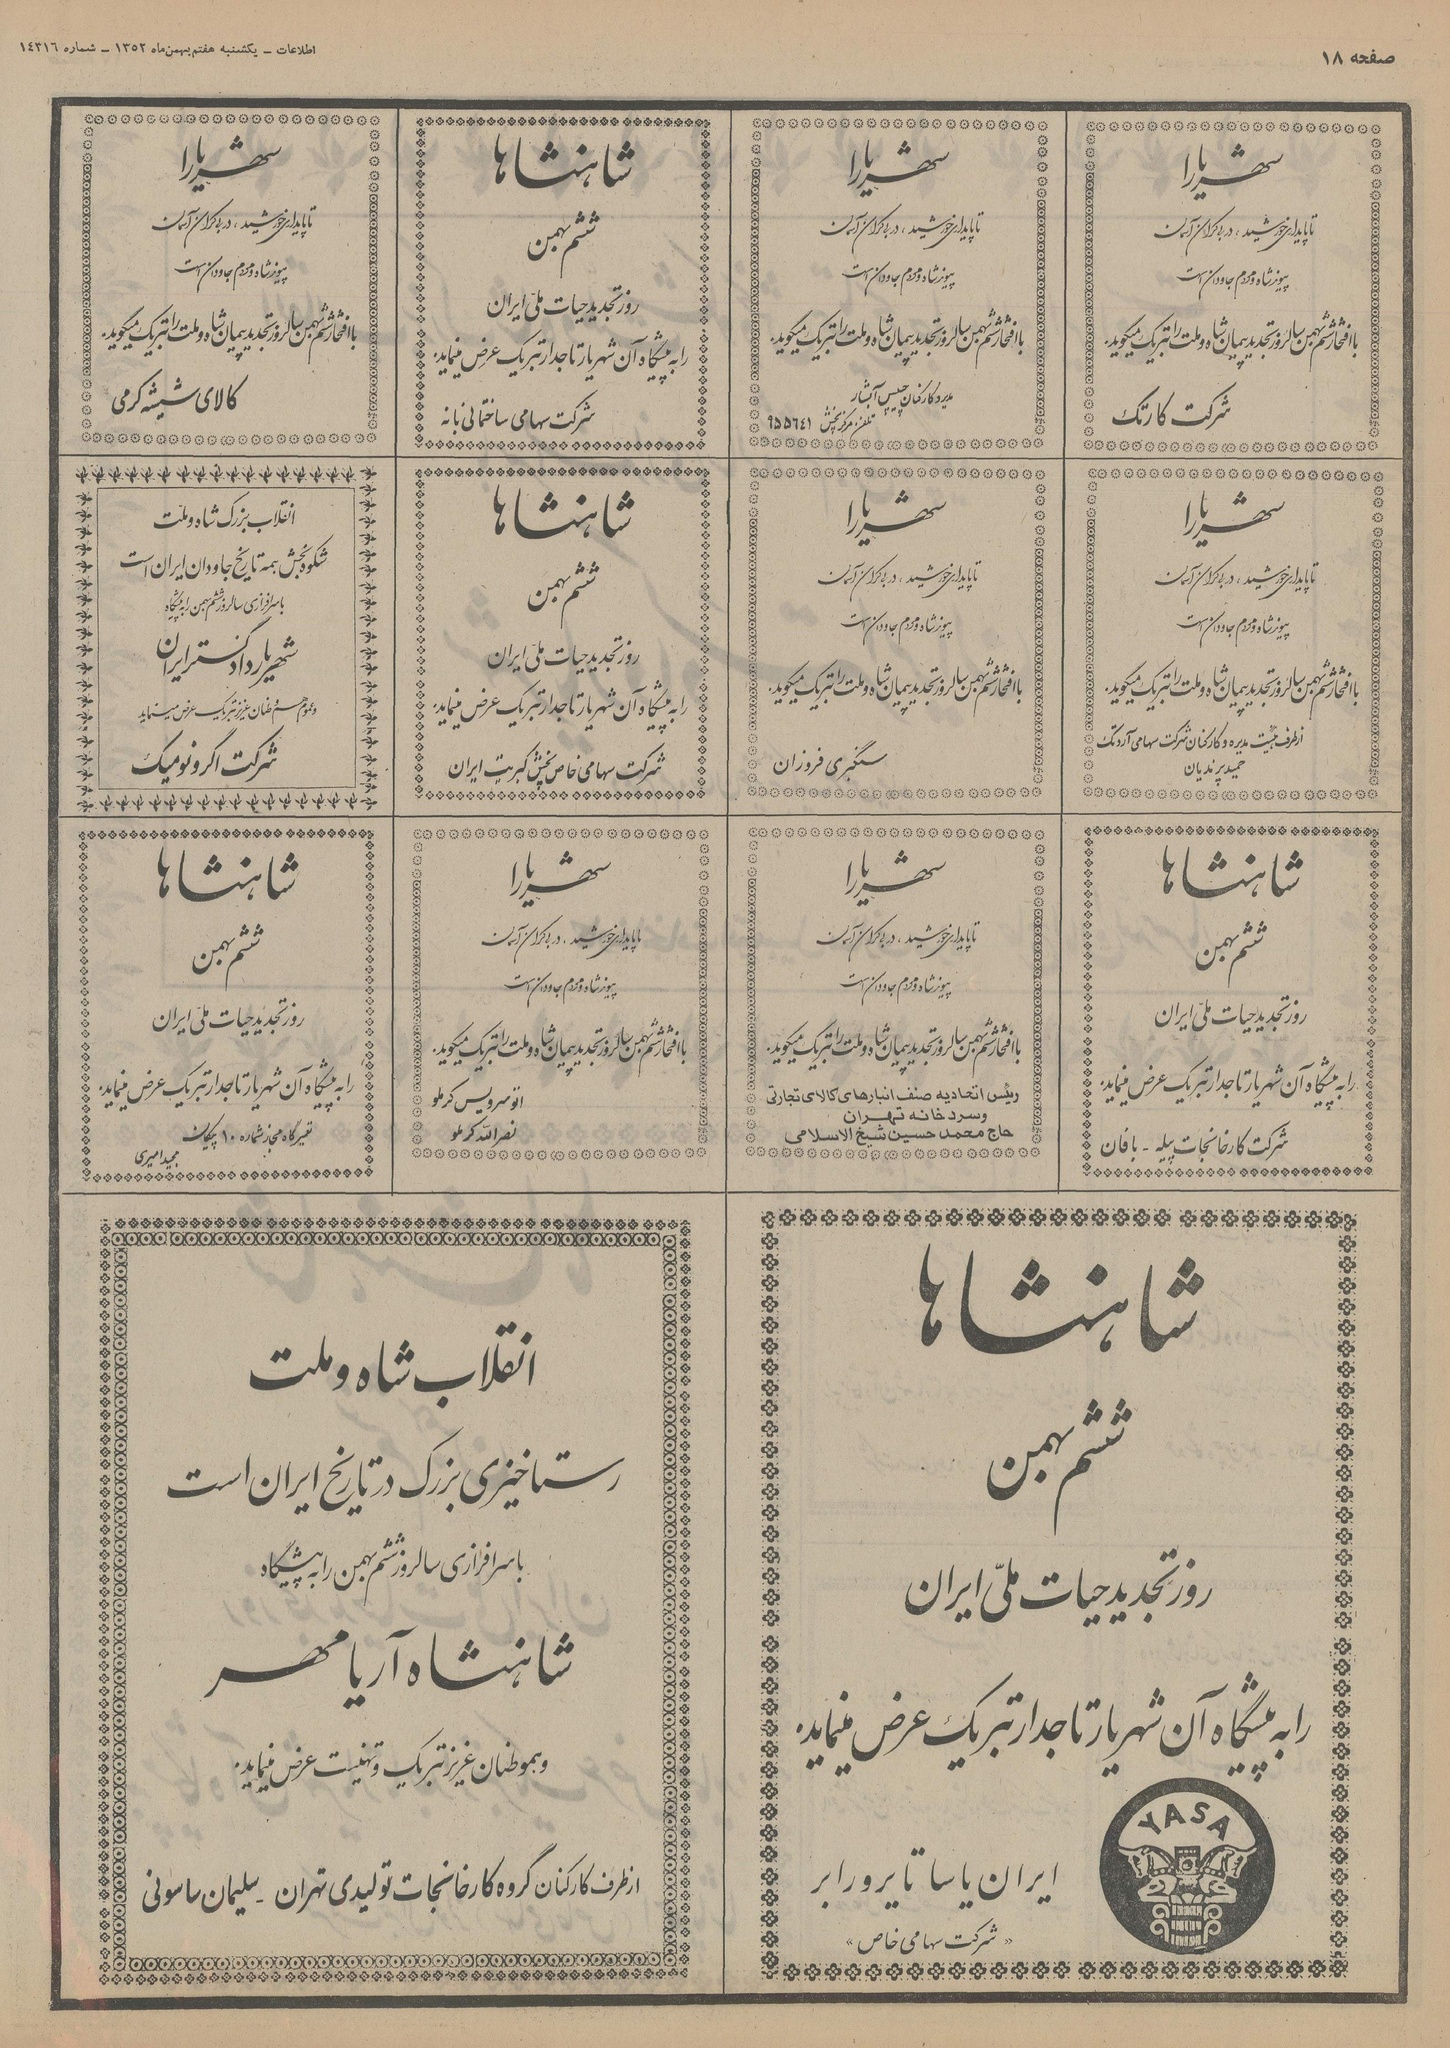 صفحه ۱۸
اطلاعات ـ یکشنبه هفتم بهمن ماه ۱۳۵۲ ـ شماره ۱٤۳۱٦
شهریارا
تا پایداری خورشید ، در بیکران آسمان
پیوند شاه و مردم جاودان است
با افتخار ششم بهمن سالروز تجدید پیمان شاه و ملت را تبریک میگوید.
شرکت کارتک
شهریارا
تا پایداری خورشید ، در بیکران آسمان
پیوند شاه و مردم جاودان است
با افتخار ششم بهمن سالروز تجدید پیمان شاه و ملت را تبریک میگوید.
مدیر و کارکنان چیپس آبشار
تلفن مرکز پخش ۹۵۵٦٤۱
شاهنشاها
ششم بهمن
روز تجدید حیات ملّی ایران
را به پیشگاه آن شهریار تاجدار تبریک عرض مینماید.
شرکت سهامی ساختمانی نانه
شهریارا
تا پایداری خورشید ، در بیکران آسمان
پیوند شاه و مردم جاودان است
با افتخار ششم بهمن سالروز تجدید پیمان شاه و ملت را تبریک میگوید.
کالای شیشه کرمی
شهریارا
تا پایداری خورشید ، در بیکران آسمان
پیوند شاه و مردم جاودان است
با افتخار ششم بهمن سالروز تجدید پیمان شاه و ملت را تبریک میگوید.
از طرف هیئت مدیره و کارکنان شرکت سهامی آردتک
حمید برندیان
شهریارا
تا پایداری خورشید ، در بیکران آسمان
پیوند شاه و مردم جاودان است
با افتخار ششم بهمن سالروز تجدید پیمان شاه و ملت را تبریک میگوید.
سنگبری فروزان
شاهنشاها
ششم بهمن
روز تجدید حیات ملّی ایران
را به پیشگاه آن شهریار تاجدار تبریک عرض مینماید.
شرکت سهامی خاص پخش کبریت ایران
انقلاب بزرگ شاه و ملّت
شکوه بخش همه تاریخ جاودان ایران است
با سرافرازی سالروز ششم بهمن را به پیشگاه
شهریار دادگستر ایران
و عموم هم میهنان عزیز تبریک عرض مینماید
شرکت اگرونومیک
شاهنشاها
ششم بهمن
روز تجدید حیات ملّی ایران
را به پیشگاه آن شهریار تاجدار تبریک عرض مینماید.
شرکت کارخانجات پیله ـ بافان
شهریارا
تا پایداری خورشید ، در بیکران آسمان
پیوند شاه و مردم جاودان است
با افتخار ششم بهمن سالروز تجدید پیمان شاه و ملت را تبریک میگوید.
رئیس اتحادیه صنف انبارهای کالای تجارتی
و سردخانه تهران
حاج محمد حسین شیخ الاسلامی
شهریارا
تا پایداری خورشید ، در بیکران آسمان
پیوند شاه و مردم جاودان است
با افتخار ششم بهمن سالروز تجدید پیمان شاه و ملت را تبریک میگوید.
اتوسرویس کرملو
نصرالله کرملو
شاهنشاها
ششم بهمن
روز تجدید حیات ملّی ایران
را به پیشگاه آن شهریار تاجدار تبریک عرض مینماید.
تعمیرگاه مجاز شماره ۱۰ پیکان
مجید امیری
شاهنشاها
ششم بهمن
روز تجدید حیات ملّی ایران
را به پیشگاه آن شهریار تاجدار تبریک عرض مینماید.
YASA
ایران یاسا تایر و رابر
« شرکت سهامی خاص »
انقلاب شاه و ملت
رستاخیزی بزرگ در تاریخ ایران است
با سرافرازی سالروز ششم بهمن را به پیشگاه
شاهنشاه آریامهر
و هموطنان عزیز تبریک و تهنیت عرض مینماید.
از طرف کارکنان گروه کارخانجات تولیدی تهران ـ سلیمان ساسونی